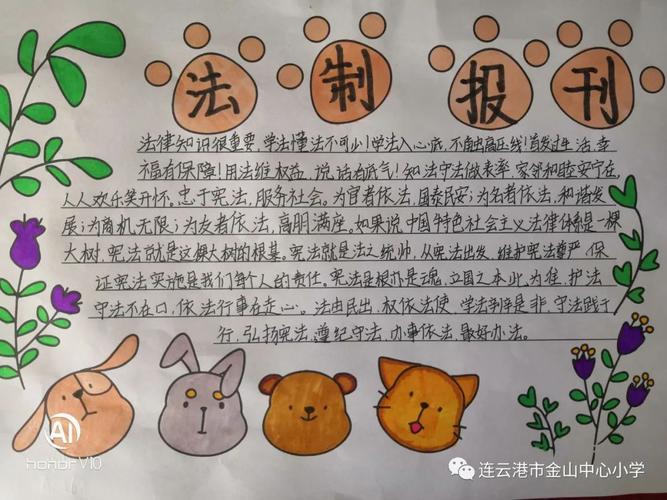 法制报刊
法律知识很重要,学法懂法不可少!学法入心底,不触高压线!首发过生活,幸
福有保障!用法维权益,说话有底气!知法守法做表率,家邻和睦安宁在,
人人欢乐笑开怀。忠于宪法,服务社会。为官者依法,国泰民安;为名者依法,和谐发
展;为商机无限;为友者依法,高朋满座。如果说中国特色社会主义法律体系是一棵
大树,宪法就是这棵大树的根基。宪法就是法之统帅,从宪法出发,维护宪法尊严,保
证宪法实施是我们每个人的责任。宪法是根亦是魂,立国之本此为准,护法
守法不在口,依法行事在走心。法由民出,权依法使,学法判辛是非,守法践于
行,弘扬宪法,遵纪守法,办事依法,最好办法。
AI
honor V10
连云港市金山中心小学